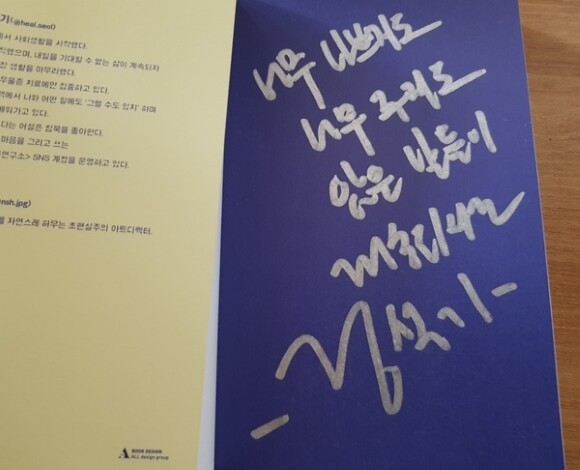 기(@heal.seol)
에서 사회생활을 시작했다.
직했으며, 내일을 기대할 수 없는 삶이 계속되자
장 생활을 마무리했다.
우울증 치료에만 집중하고 있다.
역에서 나와 어떤 일에도 '그럴 수도 있지' 하며
배워가고 있다.
다는 어설픈 침묵을 좋아한다.
마음을 그리고 쓰는
연구소> SNS 계정을 운영하고 있다.
nsh.jpg)
를 자연스레 허무는 초현실주의 아트디렉터.
A BOOK DESIGN
ALL design group
너무 나쁘지도
너무
않은 날들이
-기-